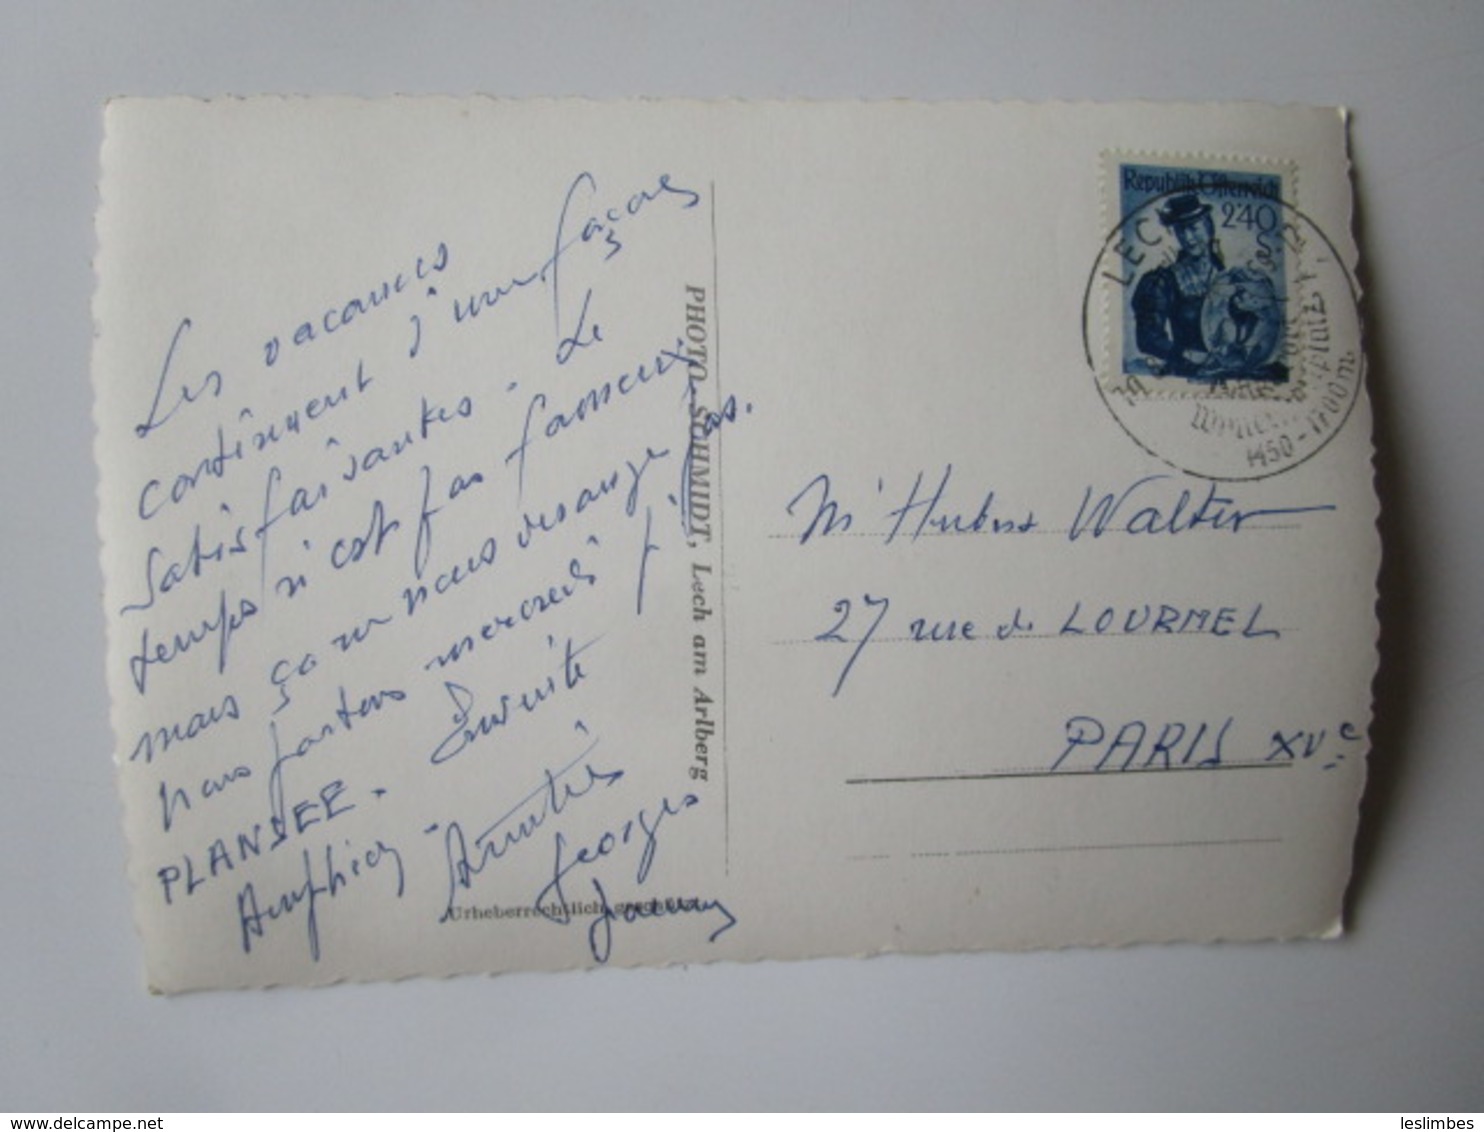 Les vacances
continuent d'une façon
satisfaisantes. Le
temps n'est pas fameux
mais ça ne nous dérange pas.
Nous partons mercredi p.
PLANSEE. Ensuite
Amphion. Amitiés
Georges
PHOTO SCHMIDT, Lech am Arlberg
Urheberrechtlich geschützt
Republik Österreich
2'40
S
LECH
1450-1700m
Mr Hubert Walter
27 rue de LOURMEL
PARIS XVe
delcampe.net
leslimbes